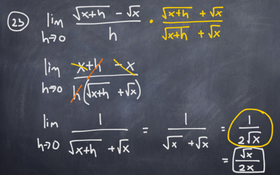 23) lim h→0 (√(x+h) - √x)/h · (√(x+h) + √x)/(√(x+h) + √x)
lim h→0 (x+h - x)/(h(√(x+h) + √x))
lim h→0 1/(√(x+h) + √x) = 1/(√x + √x) = 1/(2√x)
= √x/(2x)